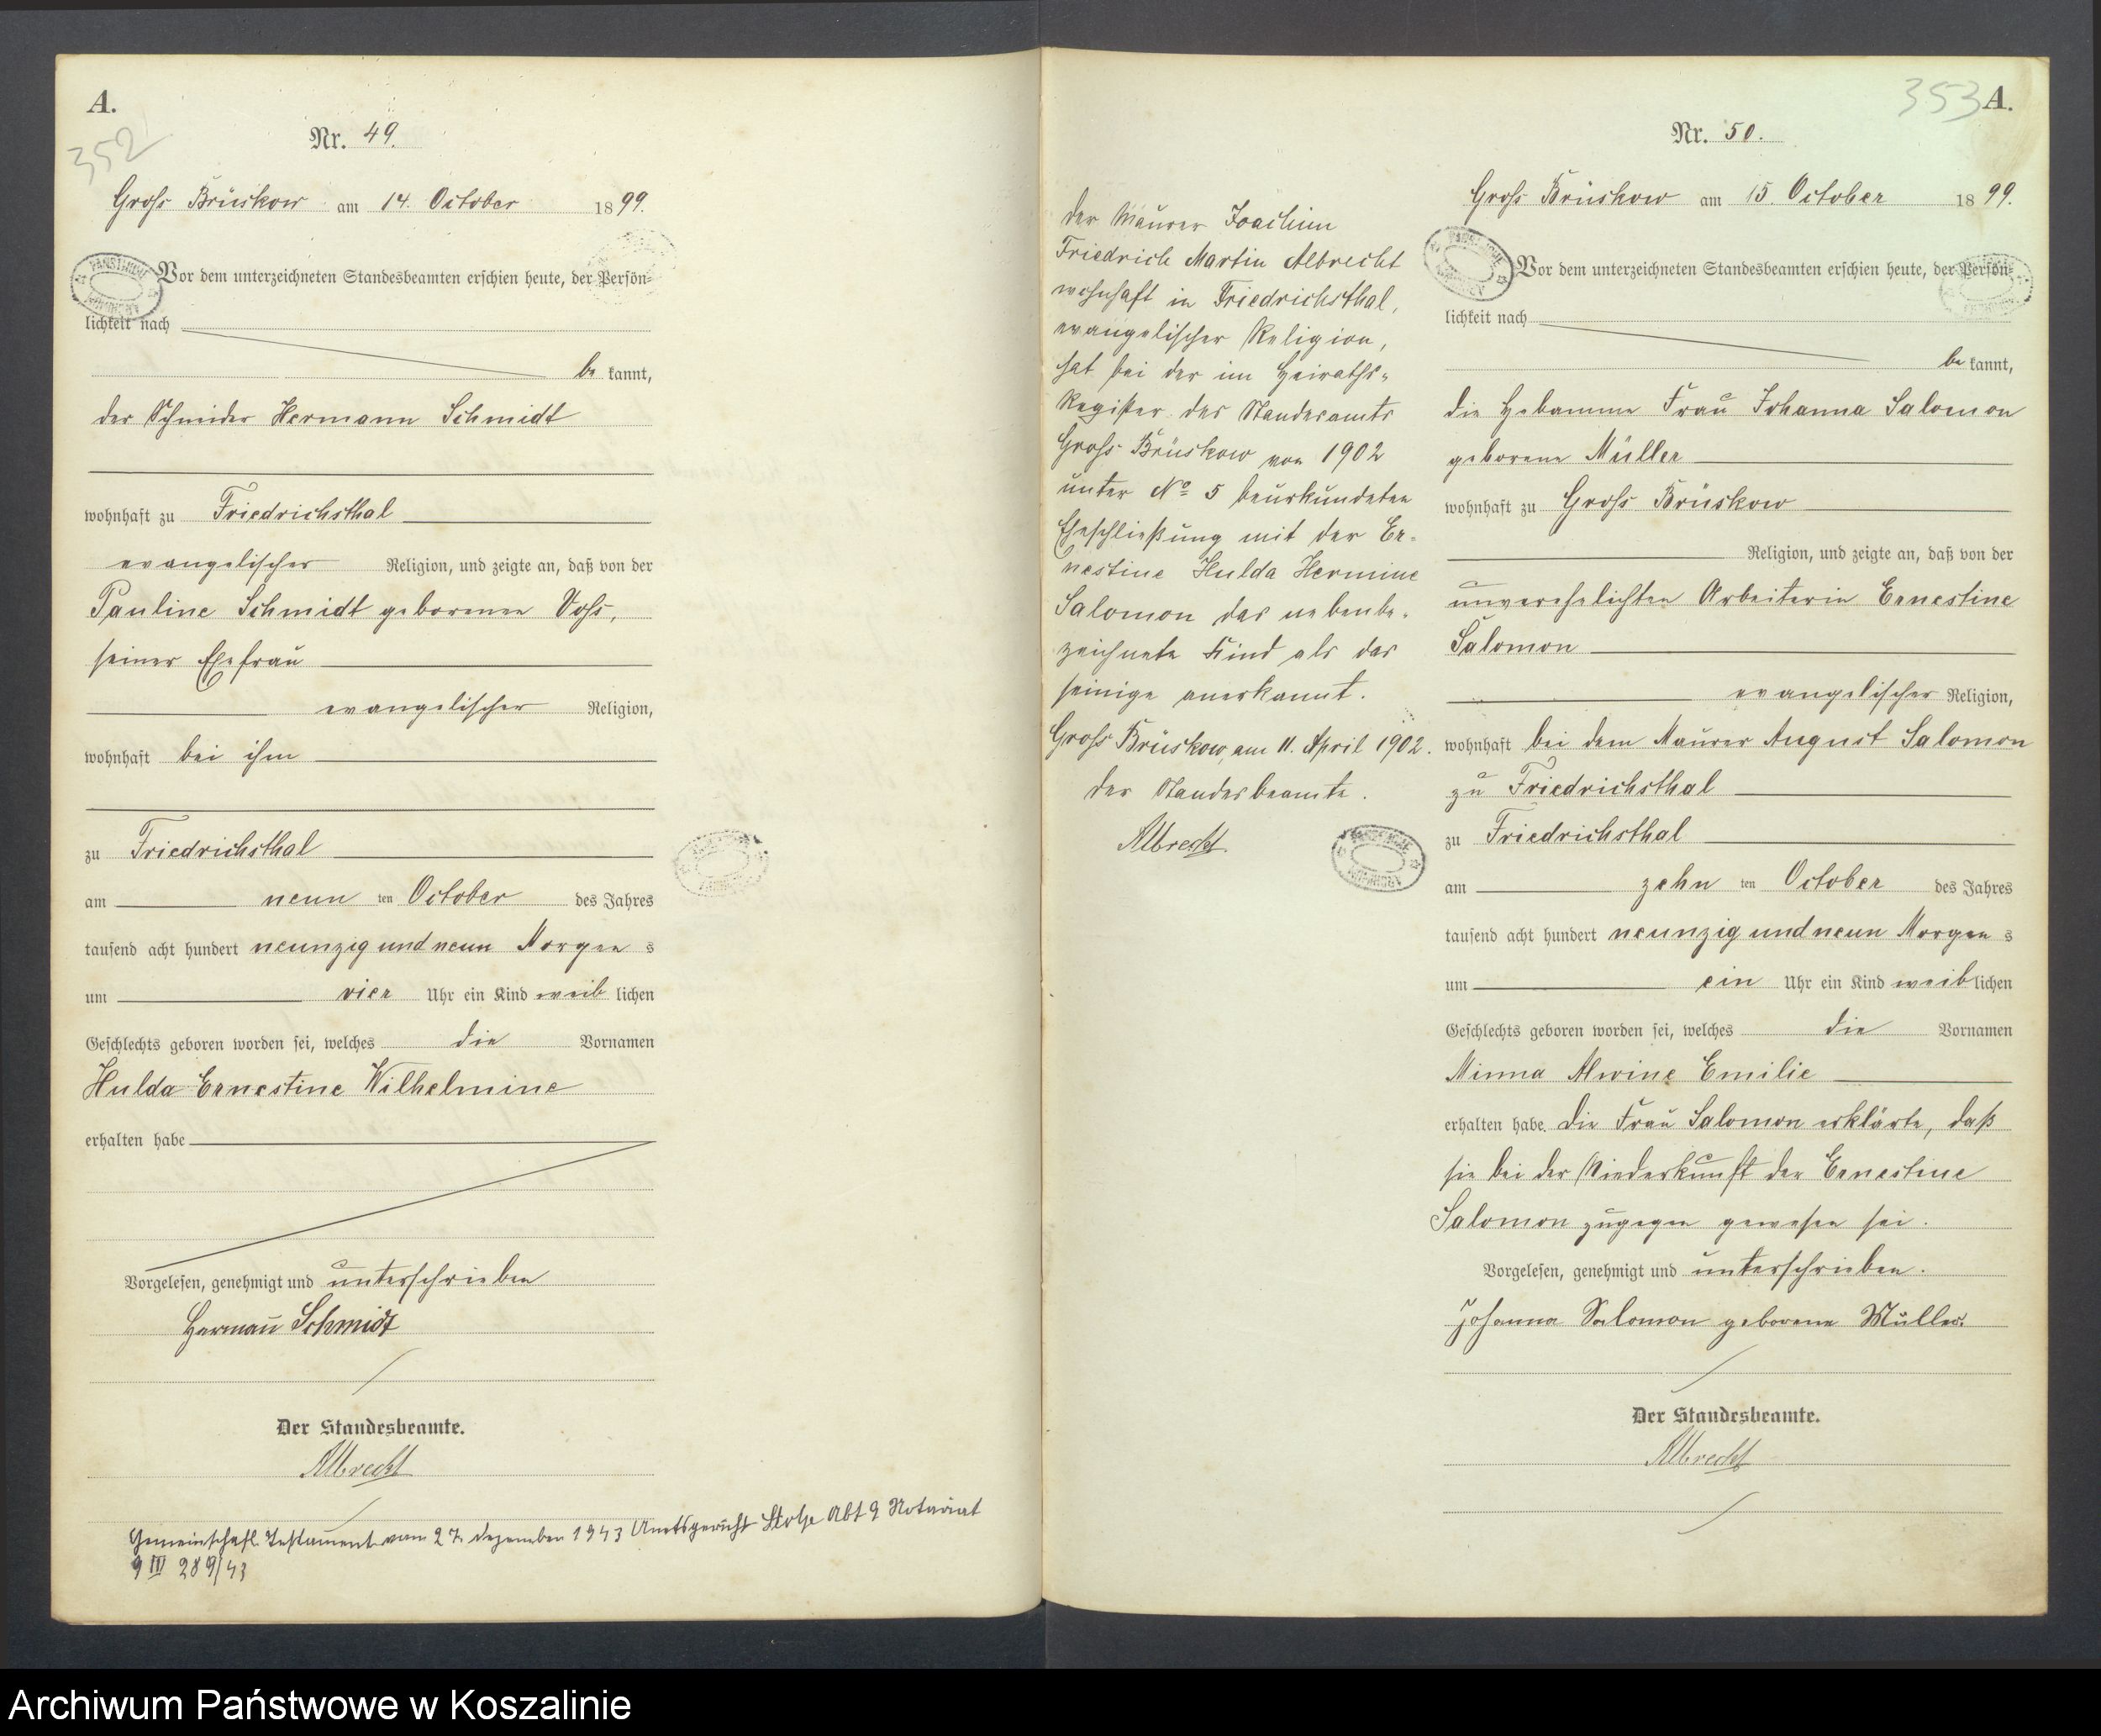 A.
352
Nr. 49.
Gross Brüskow am 14. October 1899.
Vor dem unterzeichneten Standesbeamten erschien heute, der Persön-
lichkeit nach
be kannt,
der Schneider Hermann Schmidt
wohnhaft zu Friedrichsthal
evangelischer Religion, und zeigte an, daß von der
Pauline Schmidt geborenen Voss,
seiner Ehefrau
evangelischer Religion,
wohnhaft bei ihm
zu Friedrichsthal
am neun ten October des Jahres
tausend acht hundert neunzig und neun Morgen s
um vier Uhr ein Kind weib lichen
Geschlechts geboren worden sei, welches die Vornamen
Hulda Ernestine Wilhelmine
erhalten habe
Vorgelesen, genehmigt und unterschrieben
Herman Schmidt
Der Standesbeamte.
Albrecht
Gemeinschaftl. Testament vom 27. Dezember 1943 Amtsgericht Stolp Abt 9 Notariat
9 IV 289/43
der Maurer Joachim
Friedrich Martin Albrecht
wohnhaft in Friedrichsthal,
evangelischer Religion,
hat bei der im Heiraths-
Register des Standesamts
Gross Brüskow von 1902
unter No 5 beurkundeten
Eheschließung mit der Er-
nestine Hulda Hermine
Salomon das nebenbe-
zeichnete Kind als das
seinige anerkannt.
Gross Brüskow, am 11. April 1902.
der Standesbeamte.
Albrecht.
353 A.
Nr. 50.
Gross Brüskow am 15. October 1899.
Vor dem unterzeichneten Standesbeamten erschien heute, der Persön-
lichkeit nach
be kannt,
die Hebamme Frau Johanna Salomon
geborene Müller
wohnhaft zu Gross Brüskow
Religion, und zeigte an, daß von der
unverehelichten Arbeiterin Ernestine
Salomon
evangelischer Religion,
wohnhaft bei dem Maurer August Salomon
zu Friedrichsthal
zu Friedrichsthal
am zehn ten October des Jahres
tausend acht hundert neunzig und neun Morgen s
um ein Uhr ein Kind weib lichen
Geschlechts geboren worden sei, welches die Vornamen
Minna Alwine Emilie
erhalten habe. Die Frau Salomon erklärte, daß
sie bei der Niederkunft der Ernestine
Salomon zugegen gewesen sei.
Vorgelesen, genehmigt und unterschrieben.
Johanna Salomon geborene Müller.
Der Standesbeamte.
Albrecht
Archiwum Państwowe w Koszalinie